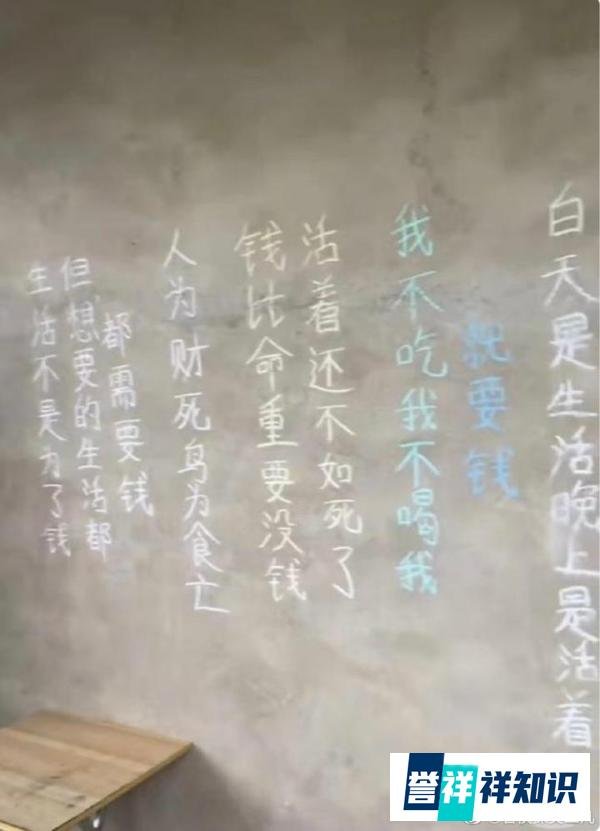 生活不是为了钱
但想要的生活都
都需要钱
人为财死鸟为食亡
钱比命重要没钱
活着还不如死了
我不吃我不喝我
就要钱
白天是生活晚上是活着
誉祥祥知识